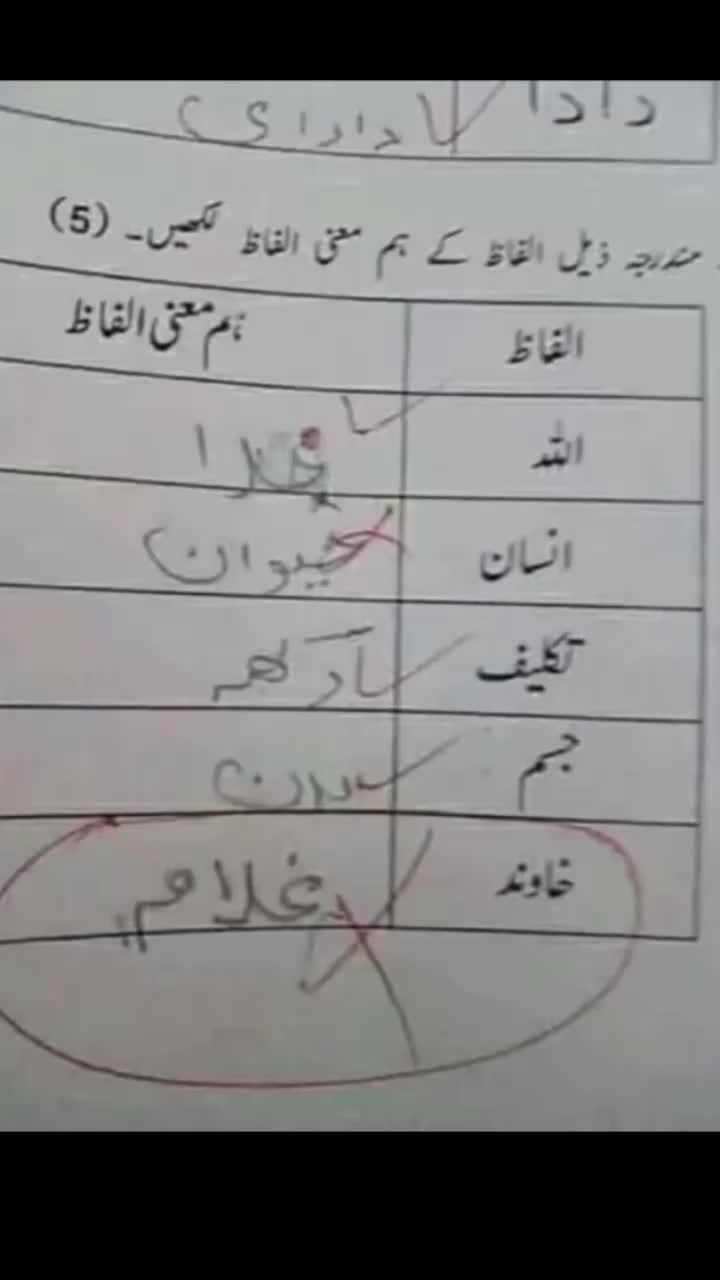 دادا دادی
مندرجہ ذیل الفاظ کے ہم معنی الفاظ لکھیں۔ (5)
الفاظ ہم معنی الفاظ
اللہ خدا
انسان حیوان
تکلیف
جسم بدن
خاوند غلام